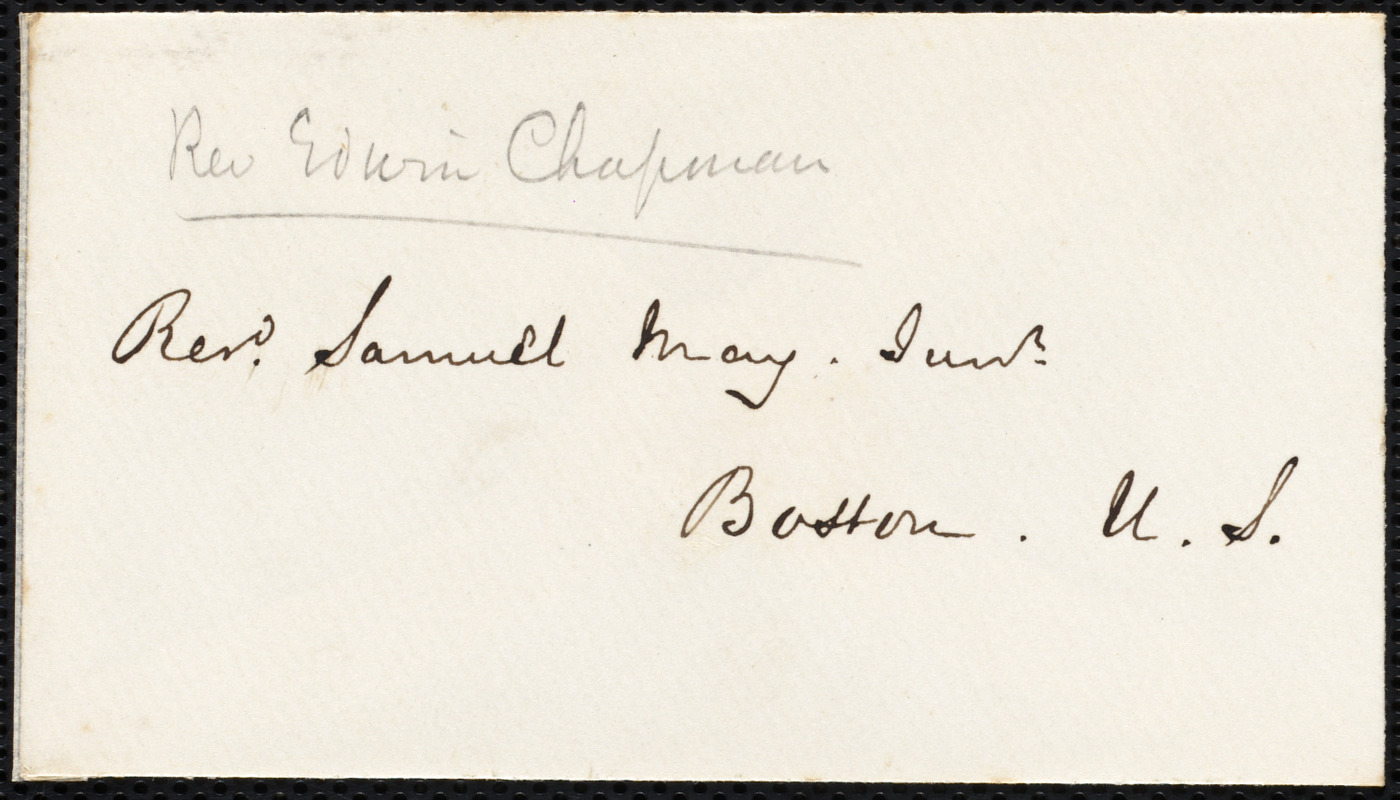 Rev Edwin Chapman
Revd. Samuel May. Junr.
Boston. U. S.